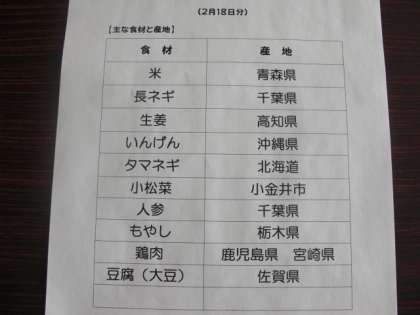 (2月18日分)
【主な食材と産地】
食材 産地
米 青森県
長ネギ 千葉県
生姜 高知県
いんげん 沖縄県
タマネギ 北海道
小松菜 小金井市
人参 千葉県
もやし 栃木県
鶏肉 鹿児島県 宮崎県
豆腐（大豆） 佐賀県